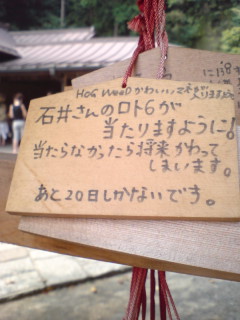 HOG WOOD かわいい
石井さんのロト6が
当たりますように!
当たらなかったら将来かわって
しまいます。
あと20日しかないです。